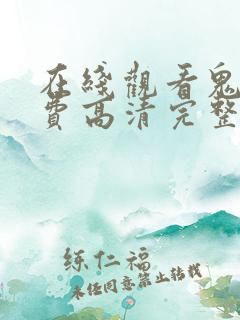 在綫觀看鬼
費高清完整
練仁福
未经同意禁止转载